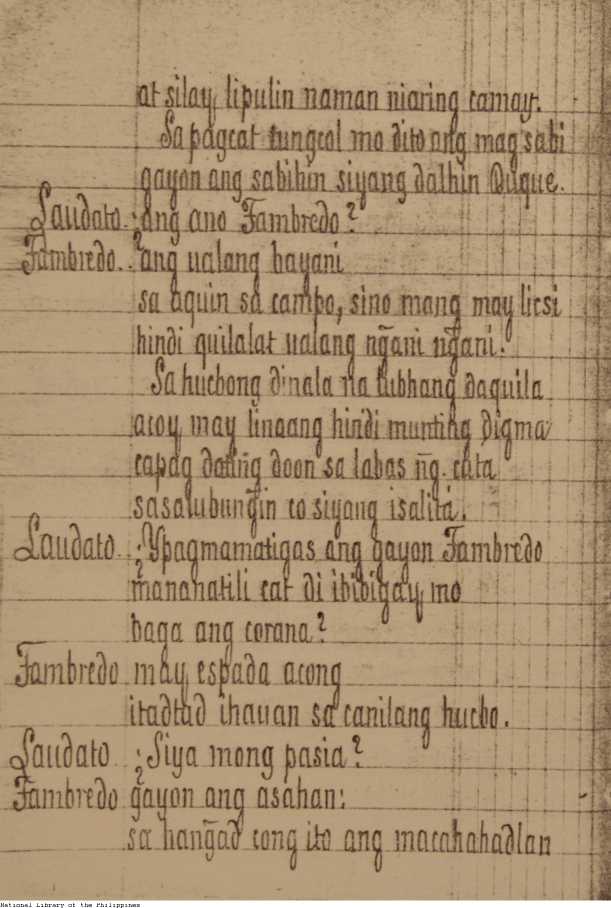 at silay, lipulin naman niaring camay.
Sa pagcat tungcol mo dito ang mag sabi
gayon ang sabihin siyang dalhin Duque.
Laudato. ¿ang ano Fambredo?
Fambredo.. ang ualang bayani
sa aquin sa campo, sino mang may licsi
hindi quilalat ualang ng̃ani ng̃ani.
Sa hucbong dinala na lubhang daquila
acoy, may linaang hindi munting digma
capag dating̃ doon sa labas ng̃. cuta
sasalubung̃in co siyang isalita.
Laudato.. ¿Ypagmamatigas ang gayon Fambredo
mananatili cat di ibibigay, mo
baga ang corona?
Fambredo may, espada acong
itadtad ihauan sa canilang hucbo.
Laudato.. ¿Siya mong pasia?
Fambredo gayon ang asahan:
sa hang̃ad cong ito ang macahahadlan
National Library of the Philippines